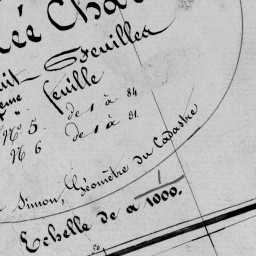 née Cha
uit Feuilles
ème " feuille
N° 5. de 1 à 84
N° 6 de 1 à 81.
Simon, Géomètre du Cadastre
Echelle de a 1/1000.